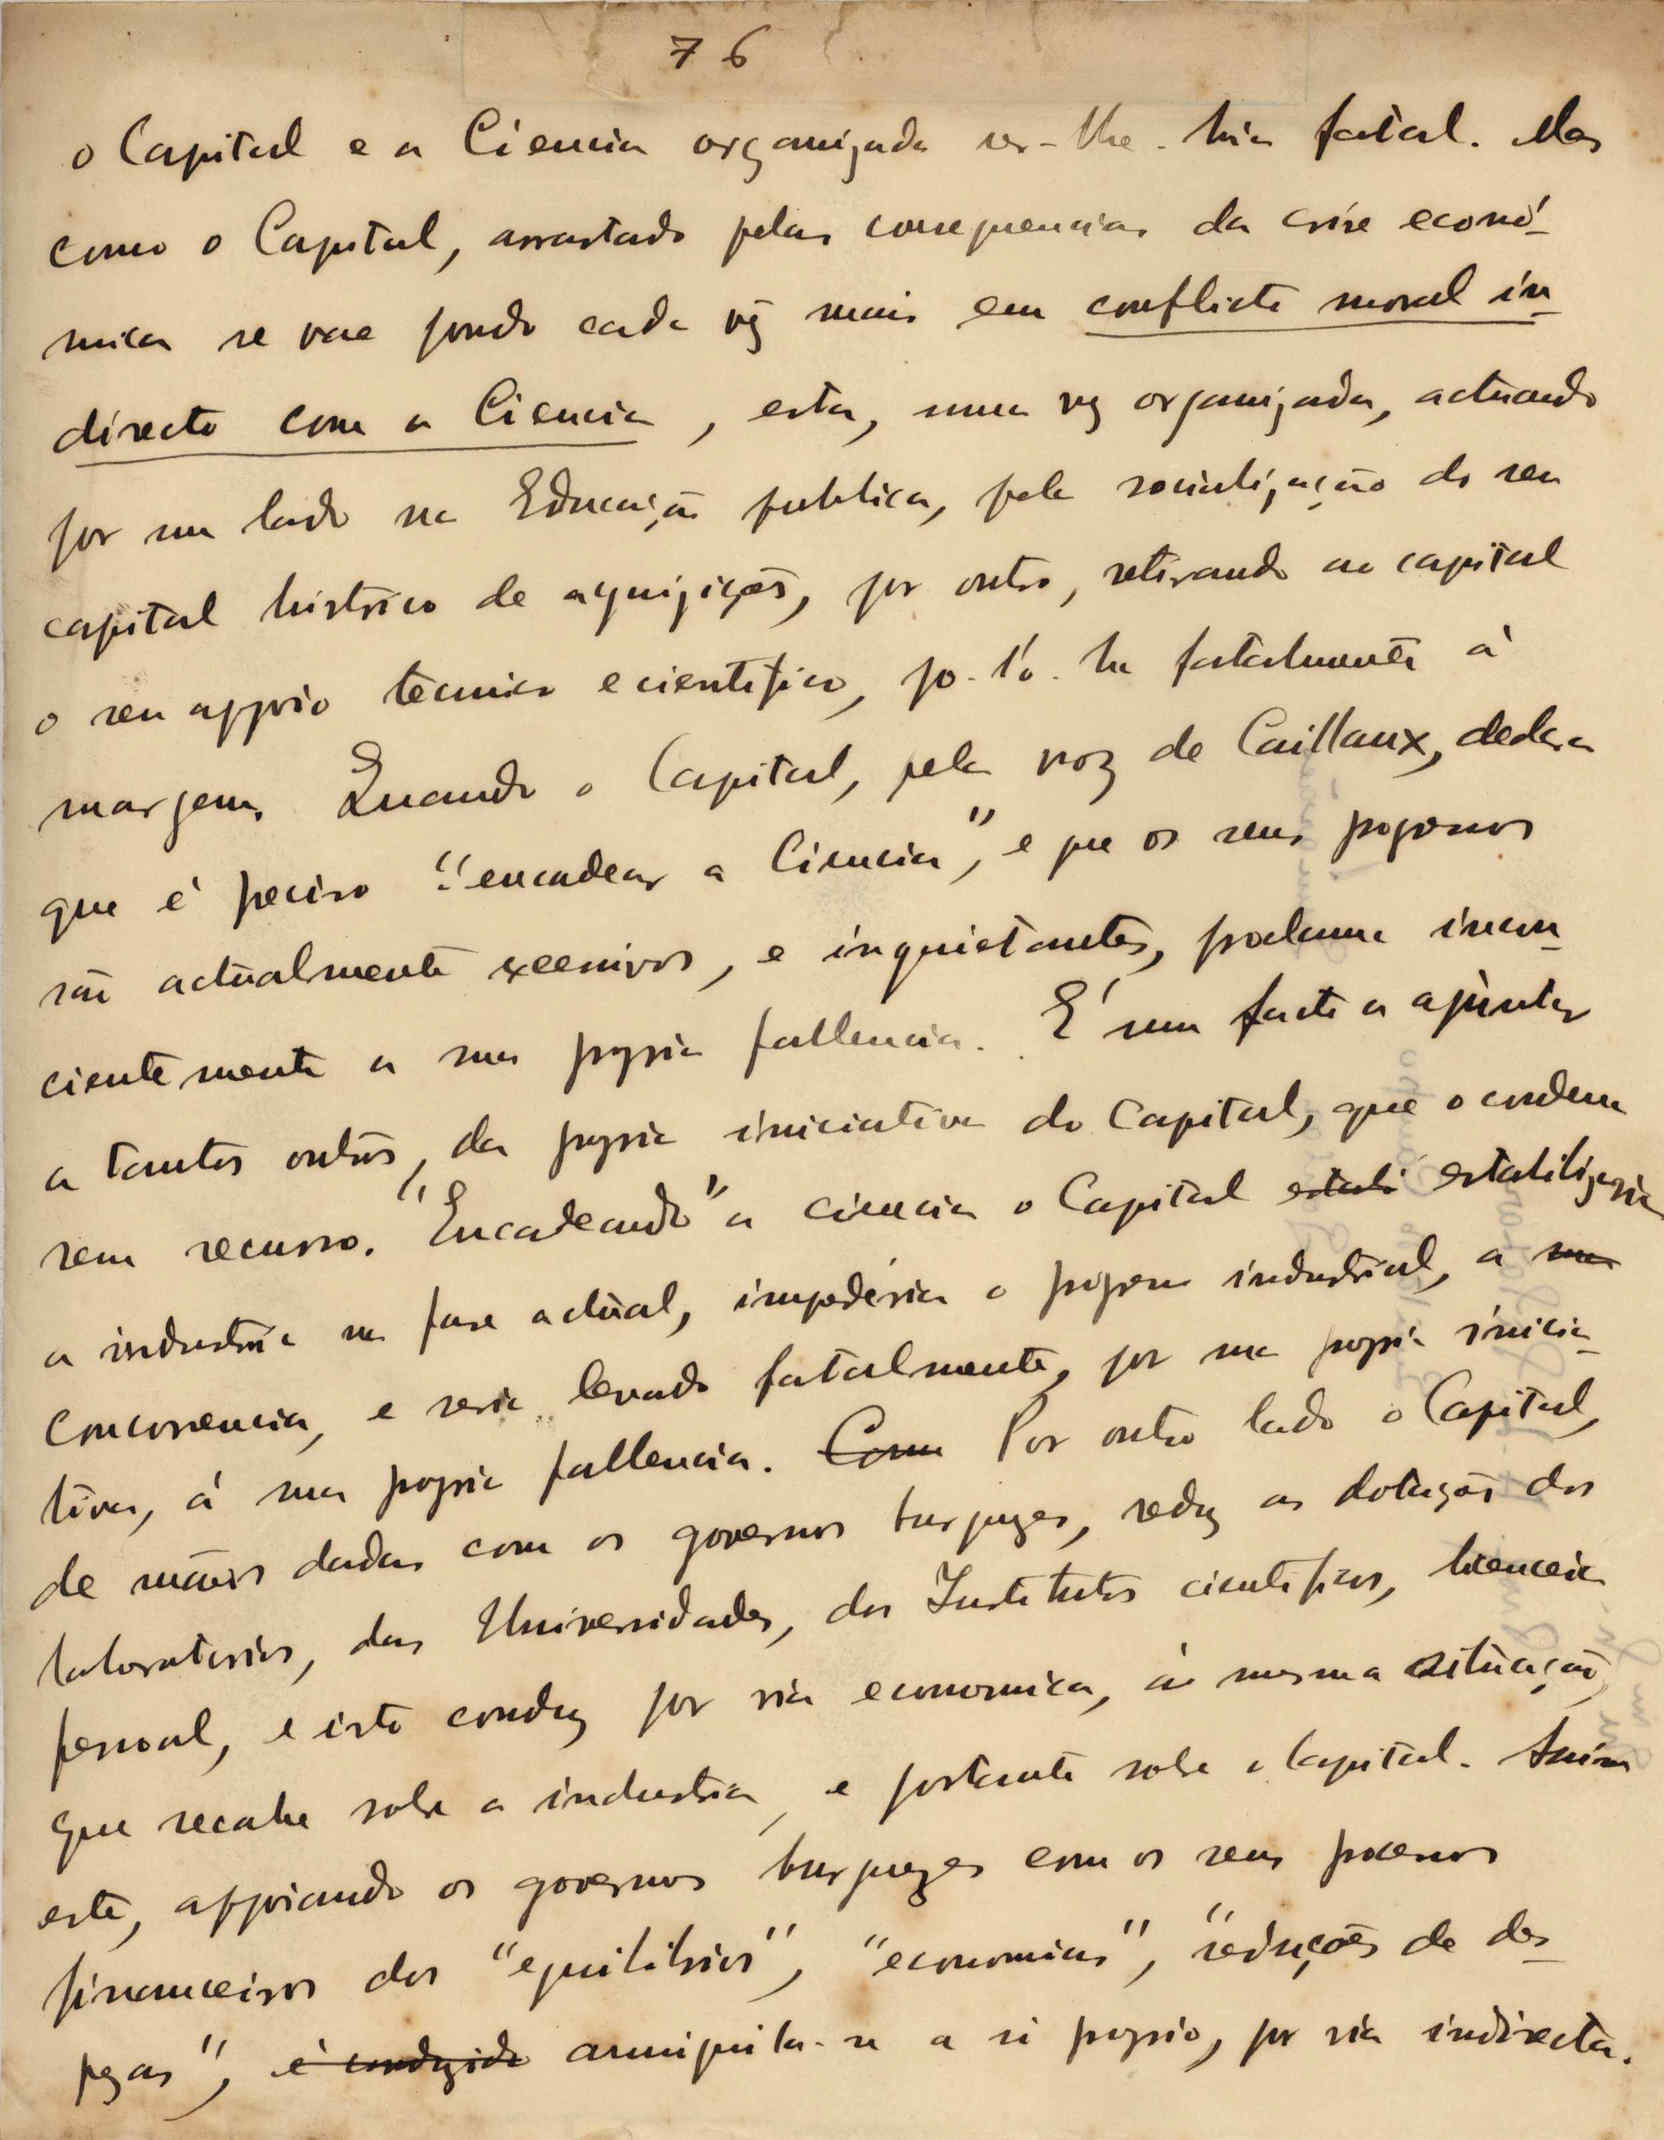 76
o Capital e a Ciencia organizada ser-lhe-hia fatal. Mas
como o Capital, arrastado pelas consequencias da crise econó-
mica se vae pondo cada vez mais em conflicto moral in-
directo com a Ciencia, esta, uma vez organizada, actuando
por um lado na Educação publica, pela socialização do seu
capital histórico de aquizições, por outro, retirando ao capital
o seu appoio tecnico e cientifico, po-l'o-ha fatalmente á
margem. Quando o Capital, pela voz de Caillaux, declara
que é preciso "encadear a Ciencia", e que os seus progressos
são actualmente excessivos, e inquietantes, proclama incons-
cientemente a sua propria fallencia. É um facto a ajuntar
a tantos outros, da propria iniciativa do Capital, que o condena
sem recurso. "Encadeando" a ciencia o Capital estabi estabilizaria
a industria na fase actual, impediria o progresso industrial, a sua
concorrencia, e seria levado fatalmente, por sua propria inicia-
tiva, á sua propria fallencia. Como Por outro lado o Capital,
de mãos dadas com os governos burguezes, reduz as dotações dos
laboratorios, das Universidades, dos Institutos cientificos, licenceia
pessoal, e isto conduz por via economica, á mesma situação,
que recahe sobre a industria, e portanto sobre o Capital. Assim
este, appoiando os governos burguezes com os seus processos
financeiros dos "equilibrios", "economias", "reduções de des-
pezas", é conduzido anniquila-se a si proprio, por via indirecta.